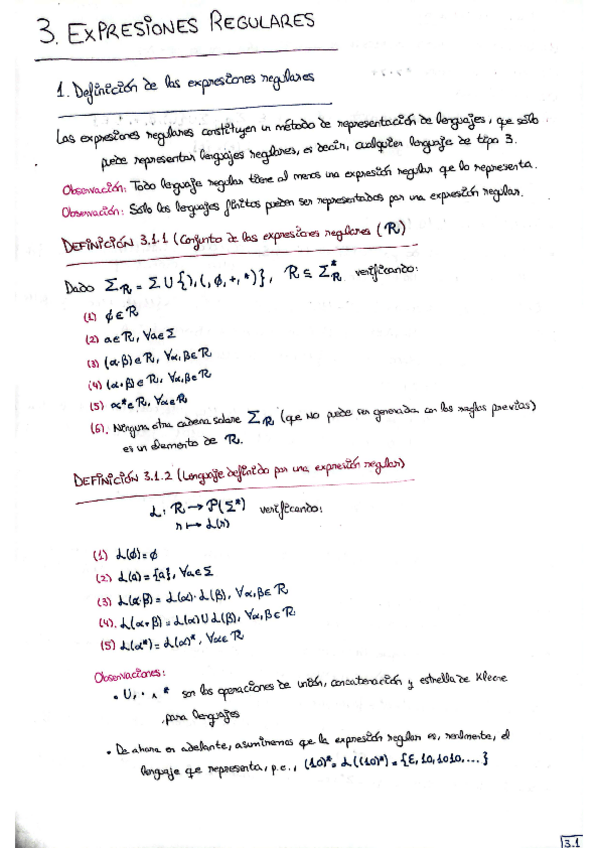 3. EXPRESIONES REGULARES
1. Definición de las expresiones regulares
Las expresiones regulares constituyen un método de representación de lenguajes, que sólo
puede representar lenguajes regulares, es decir, cualquier lenguaje de tipo 3.
Observación: Todo lenguaje regular tiene al menos una expresión regular que lo representa.
Observación: Sólo los lenguajes finitos pueden ser representados por una expresión regular.
DEFINICIÓN 3.1.1 (Conjunto de las expresiones regulares (R))
Dado Σ_R = Σ ∪ {), (, ∅, +, *)}, R ⊆ Σ_R^* verificando:
(1) ∅ ∈ R
(2) a ∈ R, ∀a ∈ Σ
(3) (α·β) ∈ R, ∀α, β ∈ R
(4) (α+β) ∈ R, ∀α, β ∈ R
(5) α* ∈ R, ∀α ∈ R
(6). Ninguna otra cadena sobre Σ_R (que NO puede ser generada con las reglas previas)
es un elemento de R.
DEFINICIÓN 3.1.2 (Lenguaje definido por una expresión regular)
L: R → P(Σ*) verificando:
r ↦ L(r)
(1) L(∅) = ∅
(2) L(a) = {a}, ∀a ∈ Σ
(3) L(α·β) = L(α)·L(β), ∀α, β ∈ R
(4). L(α+β) = L(α) ∪ L(β), ∀α, β ∈ R
(5) L(α*) = L(α)*, ∀α ∈ R
Observaciones:
• ∪, ·, * son las operaciones de unión, concatenación y estrella de Kleene
para lenguajes
• De ahora en adelante, asumiremos que la expresión regular es, realmente, el
lenguaje que representa, p.e., (10)* = L((10)*) = {ε, 10, 1010, ...}
3.1